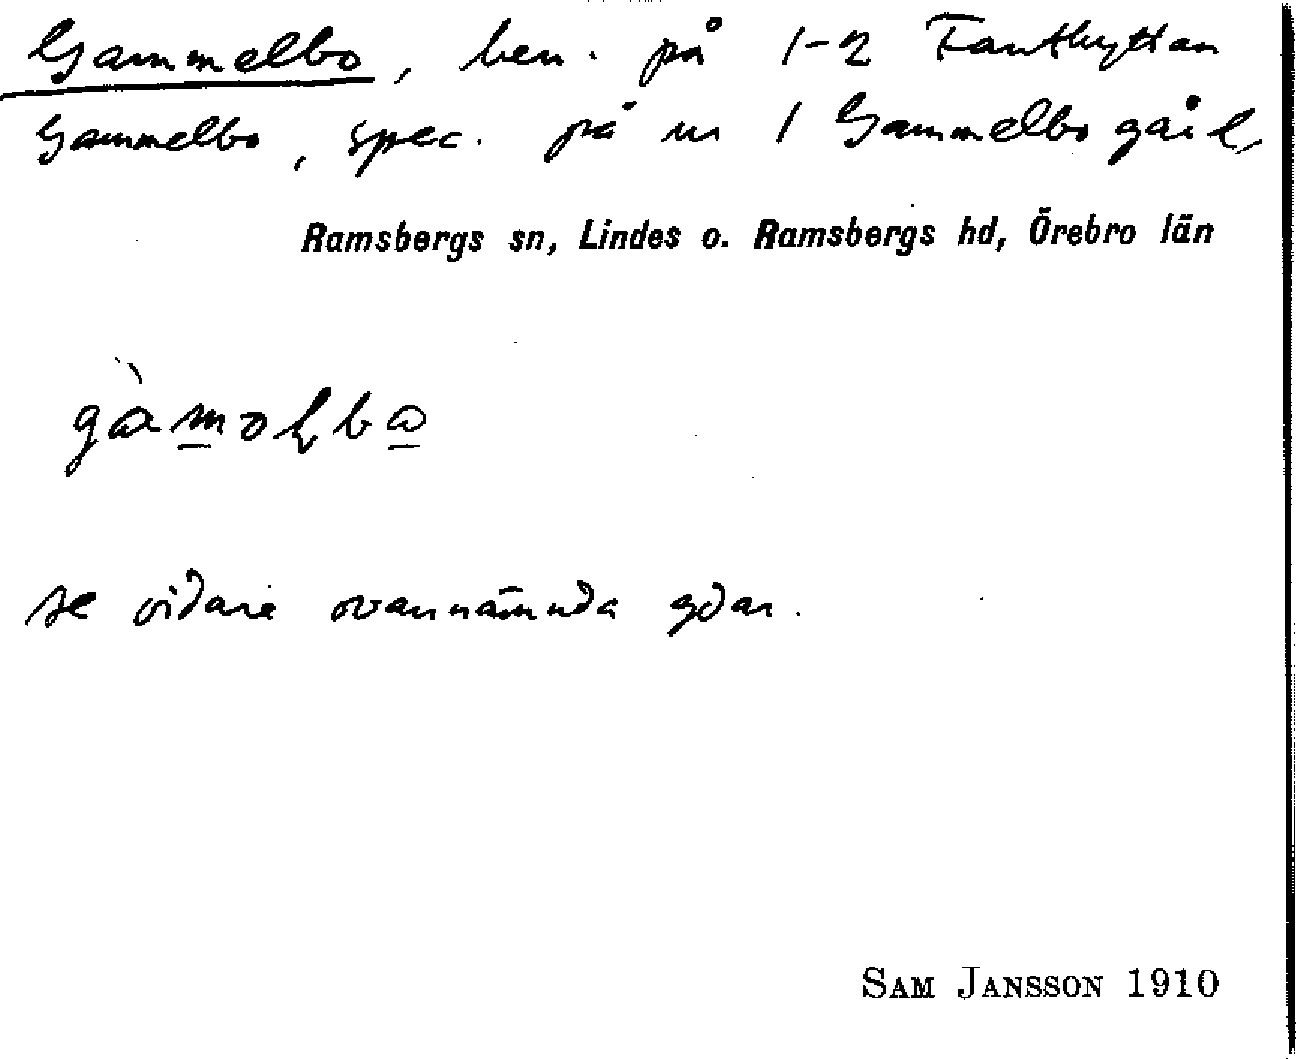 Gammelbo, ben. på 1-2 Fanthyttan
Gammelbo, spec. på nr 1 Gammelbo gård,
Ramsbergs sn, Lindes o. Ramsbergs hd, Örebro län
se vidare ovannämnda gdar.
SAM JANSSON 1910